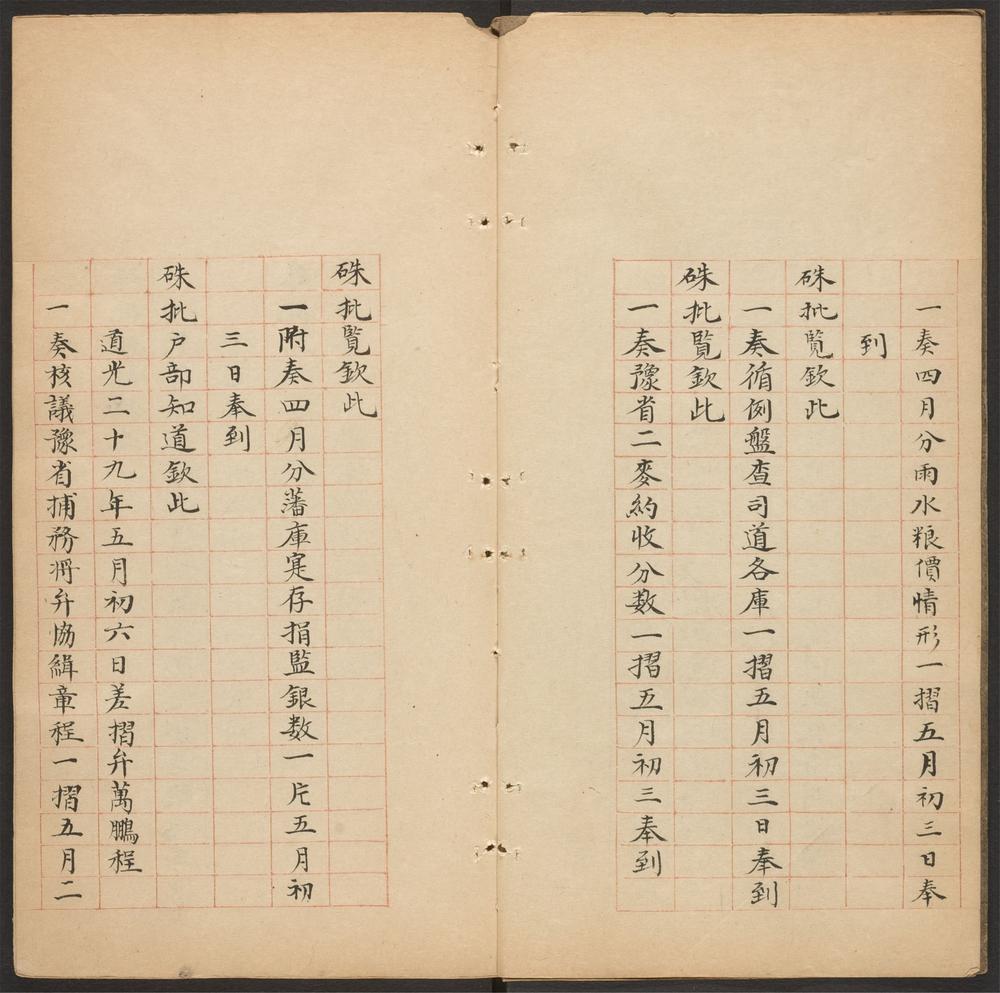 一奏四月分雨水粮價情形一摺五月初三日奉
到
硃批覽欽此
一奏循例盤查司道各庫一摺五月初三日奉到
硃批覽欽此
一奏豫省二麥約收分數一摺五月初三奉到
硃批覽欽此
一附奏四月分藩庫寔存捐監銀数一片五月初
三日奉到
硃批户部知道欽此
道光二十九年五月初六日差摺弁萬鵬程
一奏核議豫省捕務将弁協緝章程一摺五月二